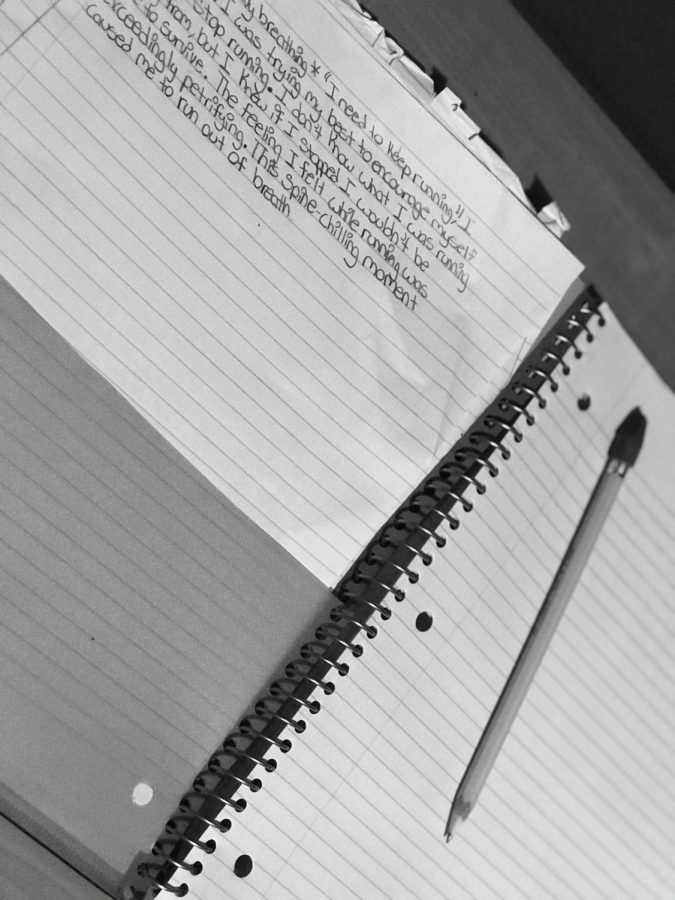 breathing * "I need to keep running," I
I was trying my best to encourage myself
stop running. I don't know what I was running
from, but I knew if I stopped I wouldn't be
to survive. The feeling I felt while running was
exceedingly petrifying. This spine-chilling moment
caused me to run out of breath.